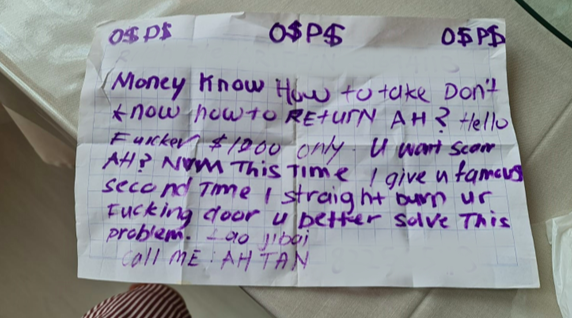 O$P$ O$P$ O$P$
Money Know How to take Don't
know how to RETURN AH? Hello
Fucker $1000 only. U want scam
AH? Now This Time I give u famous
second Time I straight burn ur
Fucking door u better solve This
problem. Lao jibai
Call ME: AH TAN